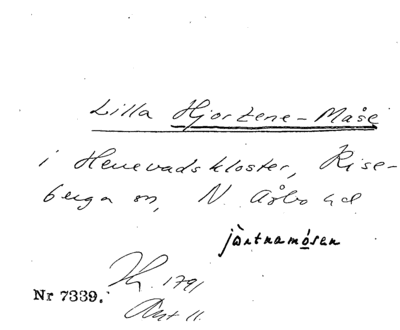 Lilla Hjortene-Måse
i Herrevadskloster, Rise-
berga sn, N. Åsbo hd
jårtnamósen
1791
Nr 7339.
Akt 11.